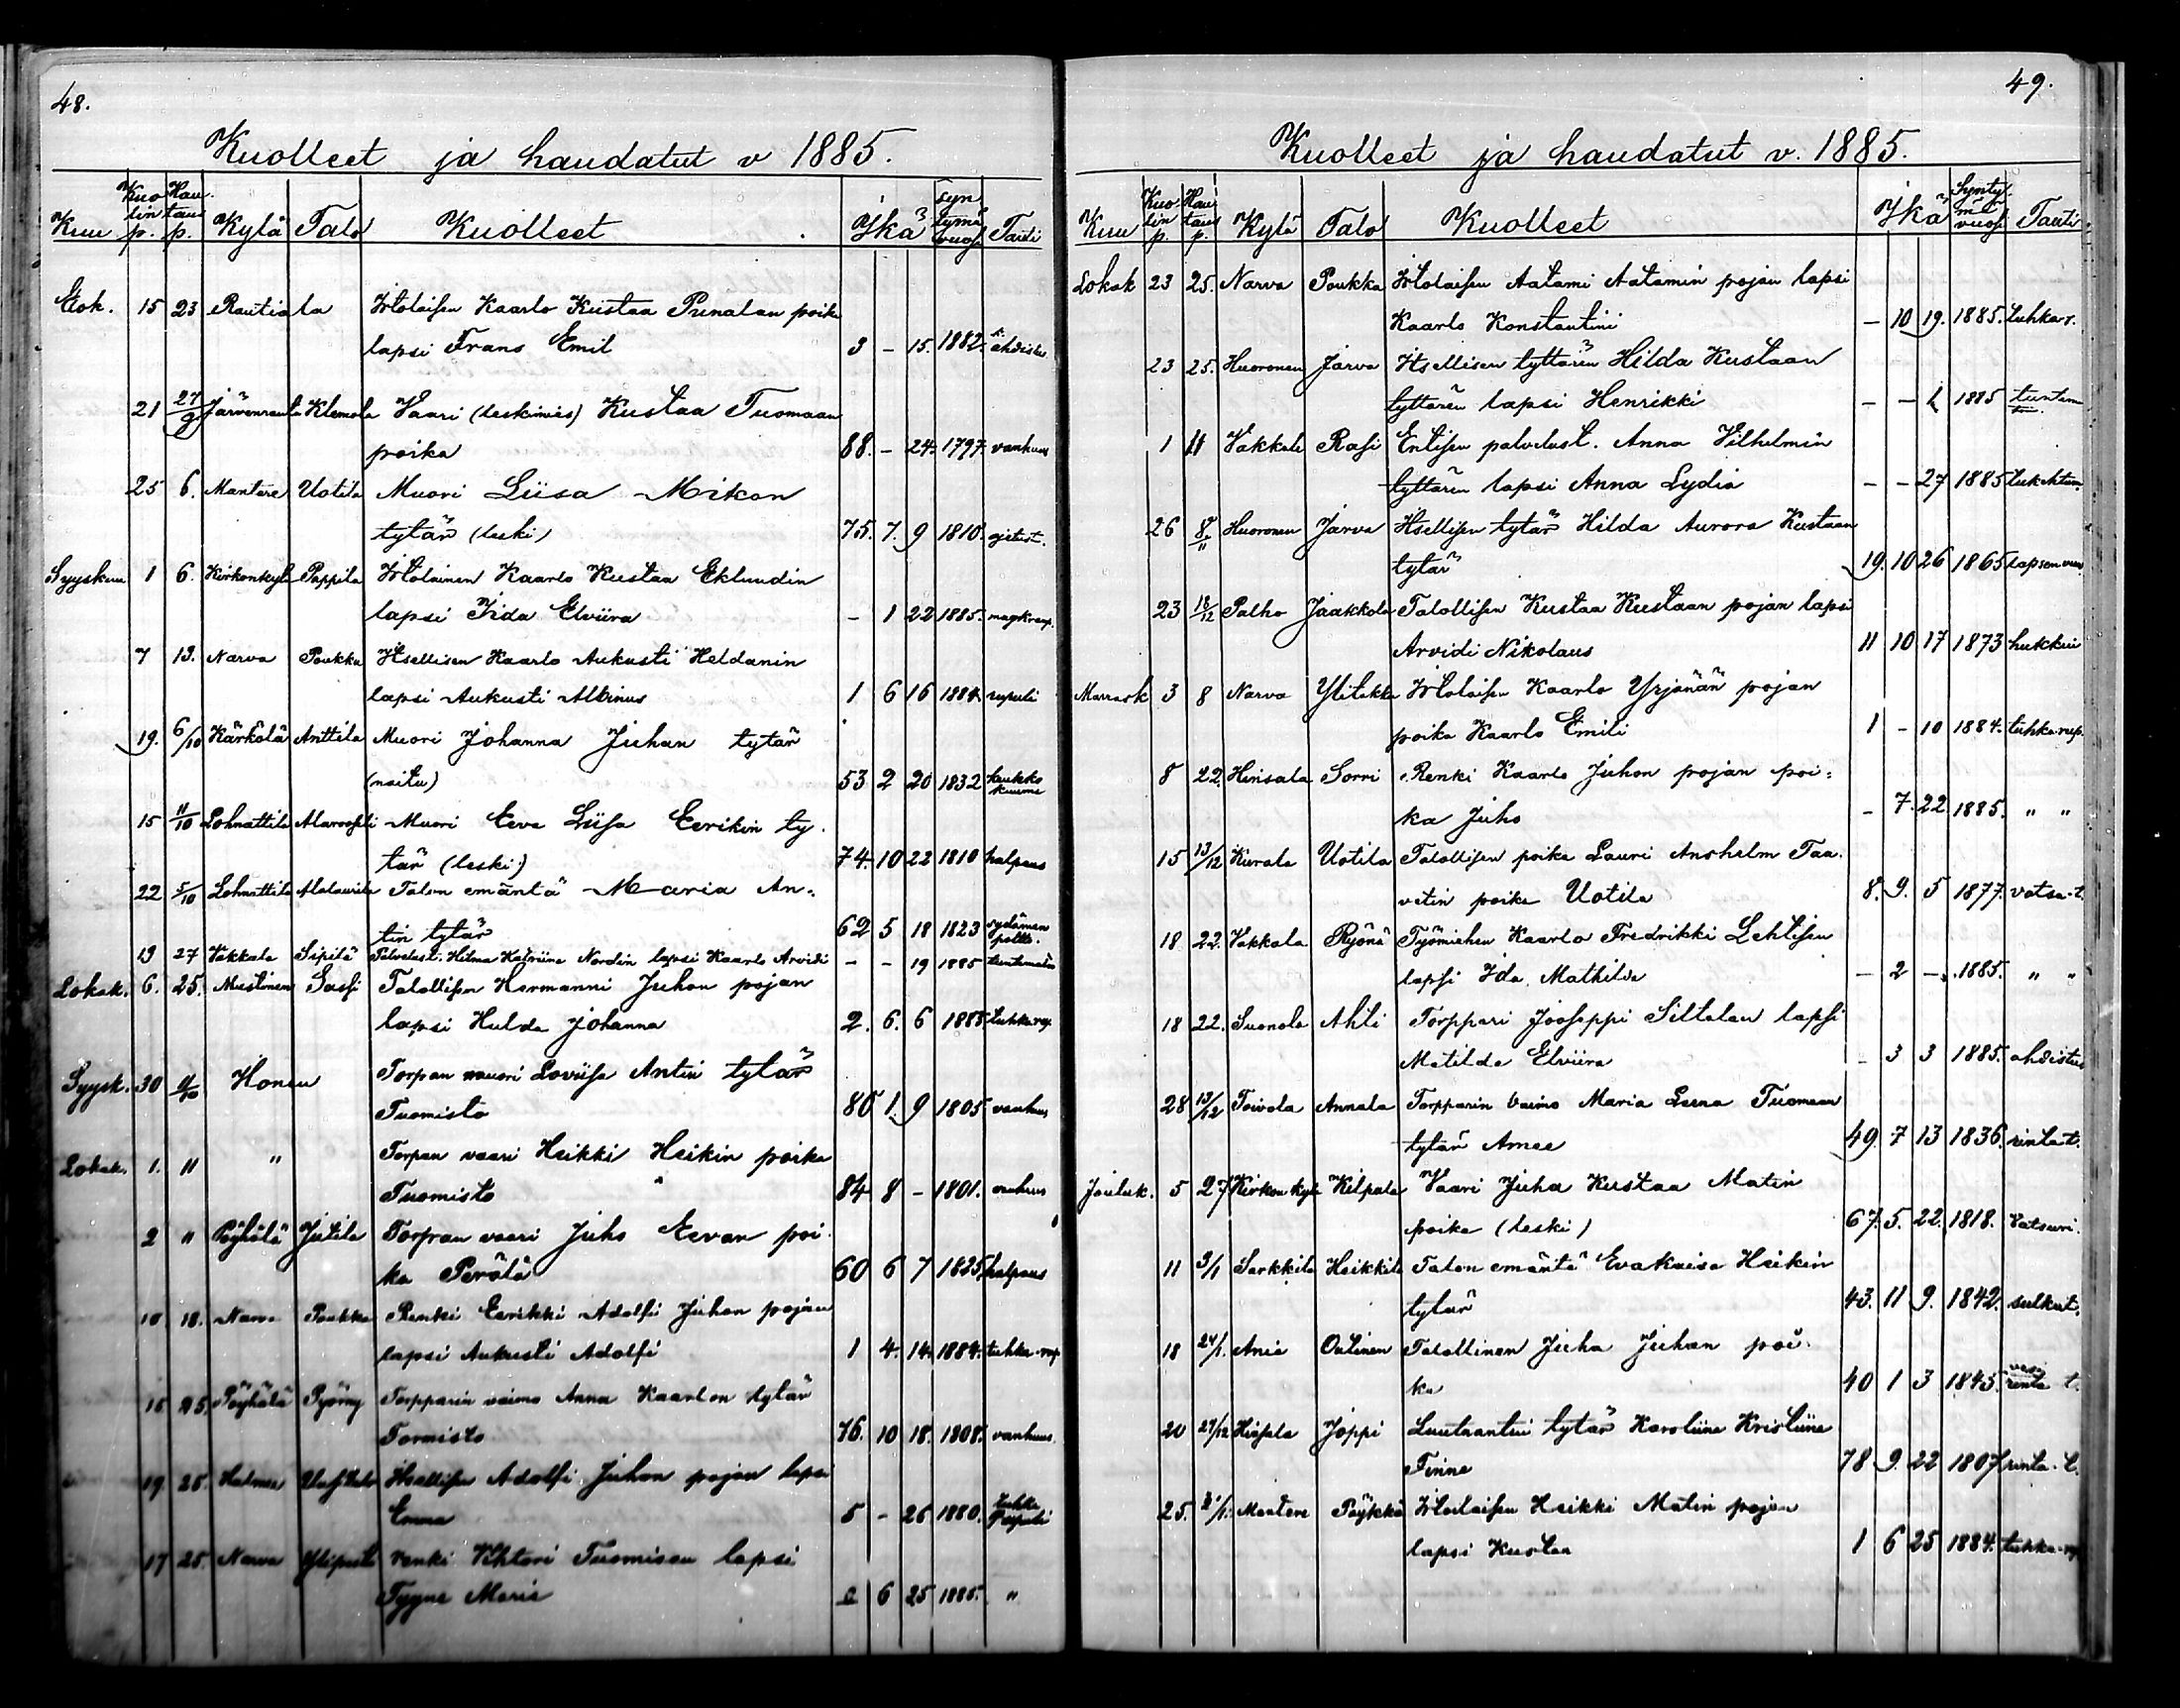 48.
Kuolleet ja haudatut v 1885.
Kuu Kuolinp. Hautausp. Kylä Talo Kuolleet Ikä syntymävuosi Tauti
Elok. 15 23 Rautiala Itsolaisen Kaarlo Kustaa Punalan poika
lapsi Frans Emil 3 - 15. 1882. ahdistus
21 27/9 Järvenranta Klemola Vaari (leskimies) Kustaa Tuomaan
poika 88. - 24. 1797. vanhuus
25 6. Mantere Uotila Muori Liisa Mikon
tytär (leski) 75. 7. 9 1810.
Syyskuu 1 6. Kirkonkylä Pappila Itolainen Kaarlo Kustaa Eklundin
lapsi Iida Elviira - 1 22 1885.
7 13. Narva Poukka Itsellisen Kaarlo Aukusti Heldanin
lapsi Aukusti Albinus 1 6 16 1884. rupuli
19. 6/10 Kärkölä Anttila Muori Johanna Juhan tytär
(naitu) 53 2 20 1832 kuume
15 11/10 Lohnattila Muori Eeva Liisa Eerikin ty-
tär (leski) 74. 10 22 1810 halpaus
22 5/10 Lohnattila Talon emäntä Maria An-
tin tytär 62 5 18 1823 sydämen poltto.
13 27 Vakkala Sipilä Palvelust. Hilma Katriina Nordin lapsi Kaarlo Arvidi - - 19 1885 tuntematon
Lokak. 6. 25. Mustinen Sassi Talollisen Hermanni Juhon pojan
lapsi Hulda Johanna 2. 6. 6 1883 tuhkarup.
Syysk. 30 Honsu Torpan muori Loviisa Antin tytär
Tuomisto 80 1. 9 1805 vanhuus
Lokak. 1. 11 " Torpan vaari Heikki Heikin poika
Tuomisto 84 8 - 1801. vanhuus
2 " Pöyhölä Jutila Torpan vaari Juho Eevan poi-
ka Perälä 60 6 7 1825 halpaus
10 18. Narva Poukka Renki Eerikki Adolfi Juhon pojan
lapsi Aukusti Adolfi 1 4. 14. 1884. tuhka-rup
25. Pöyhölä Pyörny Torpparin vaimo Anna Kaarlon tytär
Tormisto 76. 10 18. 1808. vanhuus.
19. 25. Itsellisen Adolfi Juhon pojan lapsi
Emma 5 - 26 1880. tuhka rupuli
17 25. Narva Renki Vihtori Tuomisen lapsi
Tyyne Maria 6 25 1885. "
49.
Kuolleet ja haudatut v. 1885.
Kuu Kuolinp. Hautausp. Kylä Talo Kuolleet Ikä Syntymävuosi Tauti
Lokak 23 25. Narva Poukka Itolaisen Aatami Aatamin pojan lapsi
Kaarlo Konstantini - 10 19. 1885. tuhkar.
23 25. Huoronen Jarva Itsellisen tyttären Hilda Kustaan
tyttären lapsi Henrikki - - 1885
1 11 Vakkala Rasi Entisen palvelust. Anna Vilhelmin
tyttären lapsi Anna Lydia - - 27 1885
26 8/11 Huoronen Jarva Itsellisen tytär Hilda Aurora Kustaan
tytär 19. 10 26 1865 lapsenvuo.
23 18/12 Palho Jaakkola Talollisen Kustaa Kustaan pojan lapsi
Arvidi Nikolaus 11 10 17 1873 hukkui
Marrask 3 8 Narva Itolaisen Kaarlo Yrjänän pojan
poika Kaarlo Emili 1 - 10 1884. tuhka-rup.
8 22. Hinsala Sorri Renki Kaarlo Juhon pojan poi-
ka Juho - 7. 22 1885. " "
15 13/12 Kurala Uotila Talollisen poika Lauri Anshelm Taa-
vetin poika Uotila 8. 9. 5 1877. vatsa-t.
18 22. Vakkala Ryönä Työmiehen Kaarlo Fredrikki Lehtisen
lapsi Ida Mathilda - 2 - 1885. " "
18 22. Suonola Ahti Torppari Jooseppi Siltalan lapsi
Matilda Elviira - 3 3 1885. ahdistus
28 13/12 Toivola Annala Torpparin vaimo Maria Leena Tuomaan
tytär Amee 49. 7 13 1836. rinta-t.
Jouluk. 5 27 Kirkonkylä Kilpala Vaari Juha Kustaa Matin
poika (leski) 67. 5. 22. 1818.
11 3/1 Sarkkila Heikkilä Talon emäntä Evakaisa Heikin
tytär 43. 11 9. 1842.
18 24/1. Ania Outinen Talollinen Juha Juhan poi-
ka 40 1 3 1845. rinta t.
20 27/12 Hinsala Joppi Luutnantin tytär Karoliina Kristiina
Finne 78 9. 22 1807 rinta-t.
25. Mantere Pöykkä Itolaisen Heikki Matin pojan
lapsi Kustaa 1 6 25 1884. tuhka-rup